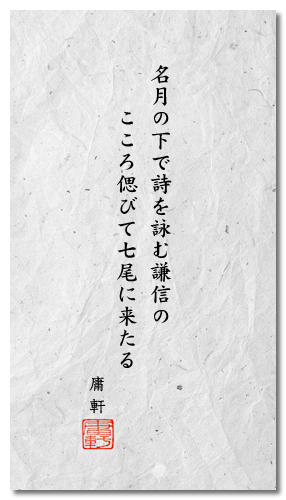 名月の下で詩を詠む謙信の
こころ偲びて七尾に来たる
庸軒
庸軒